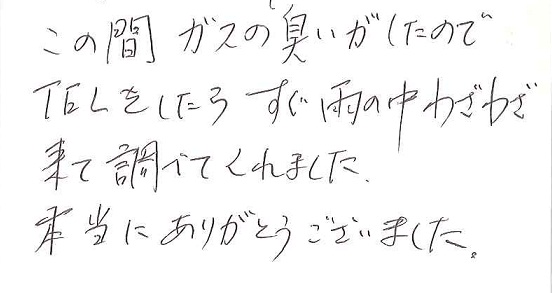 この間 ガスの臭いがしたので
TELをしたら すぐ雨の中わざわざ
来て調べてくれました.
本当にありがとうございました。